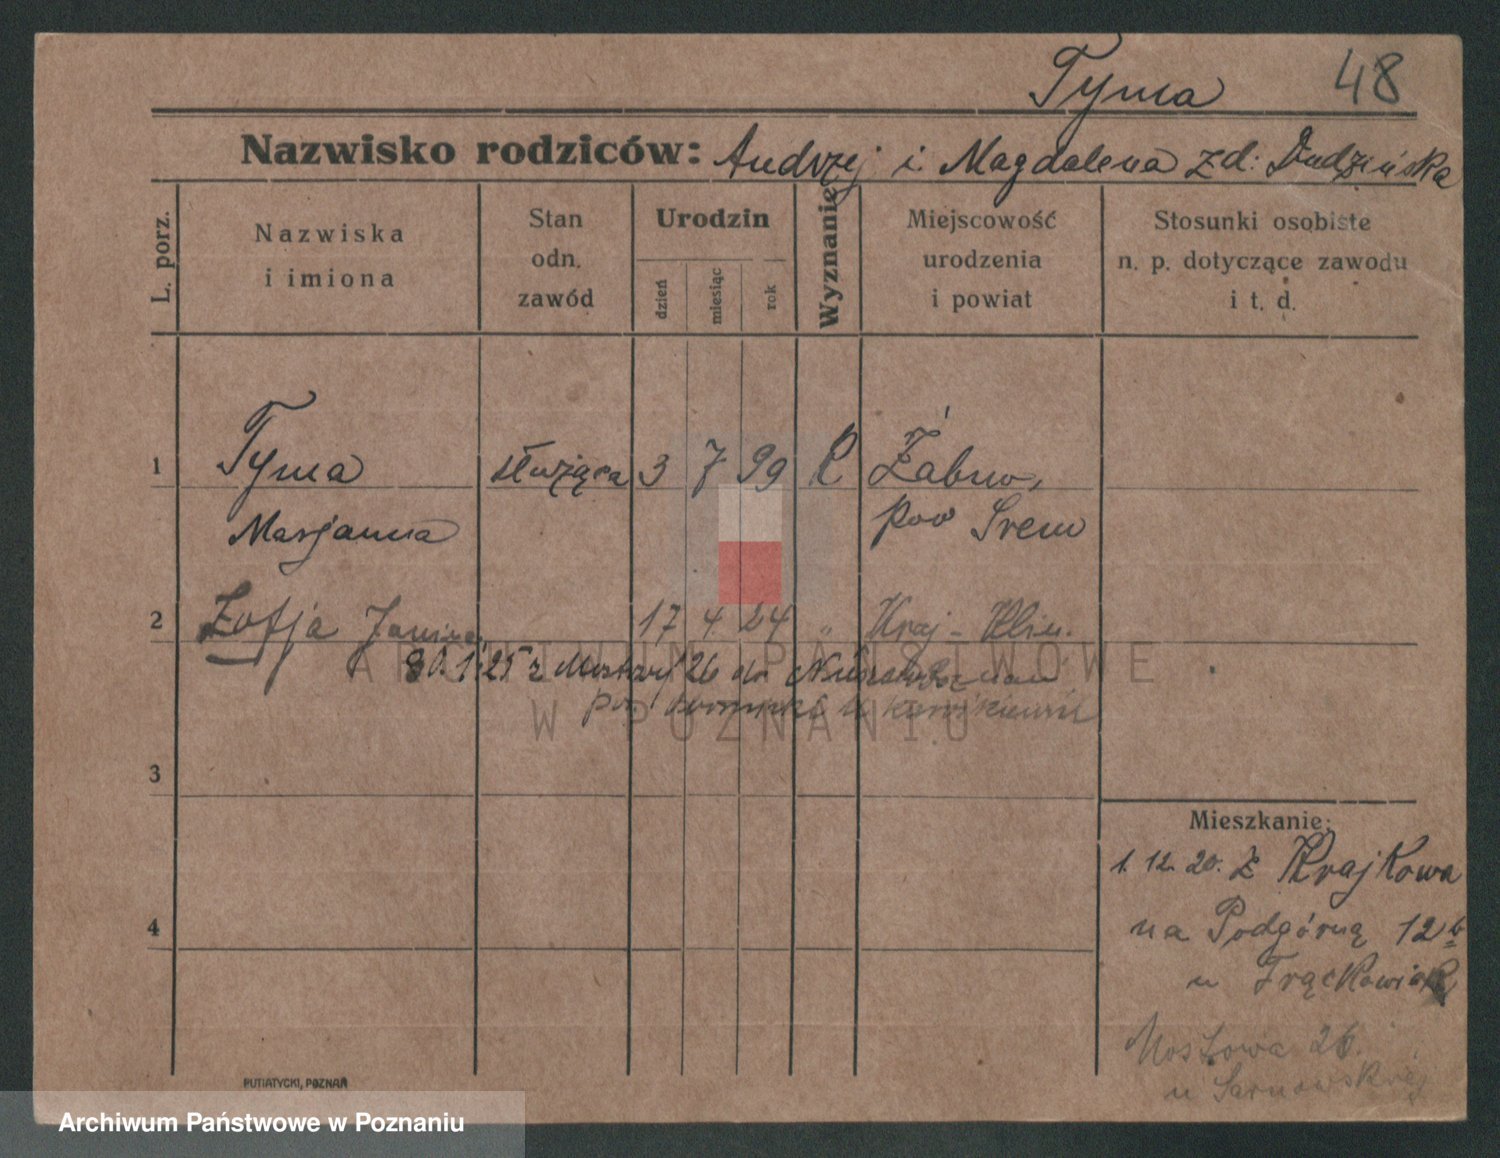 Tyma 48
Nazwisko rodziców: Andrzej i Magdalena zd: Dudzińska
L. porz.
Nazwiska
i imiona
Stan
odn.
zawód
Urodzin
dzień
miesiąc
rok
Wyznanie
Miejscowość
urodzenia
i powiat
Stosunki osobiste
n. p. dotyczące zawodu
i t. d.
1 Tyma służąca 3 7 99 R Żabno,
Marjanna pow Śrem
2 Zofja Janina 17 4 24 „ Kraj-
30.1.25 z Mostowej 26 do
ARCHIWUM PAŃSTWOWE
W POZNANIU
3
4
Mieszkanie:
1. 12. 20. z Krajkowa
na Podgórną 12b
u Frąckowiak
Mostowa 26.
u Sarnowskiej
PUTIATYCKI, POZNAŃ
Archiwum Państwowe w Poznaniu